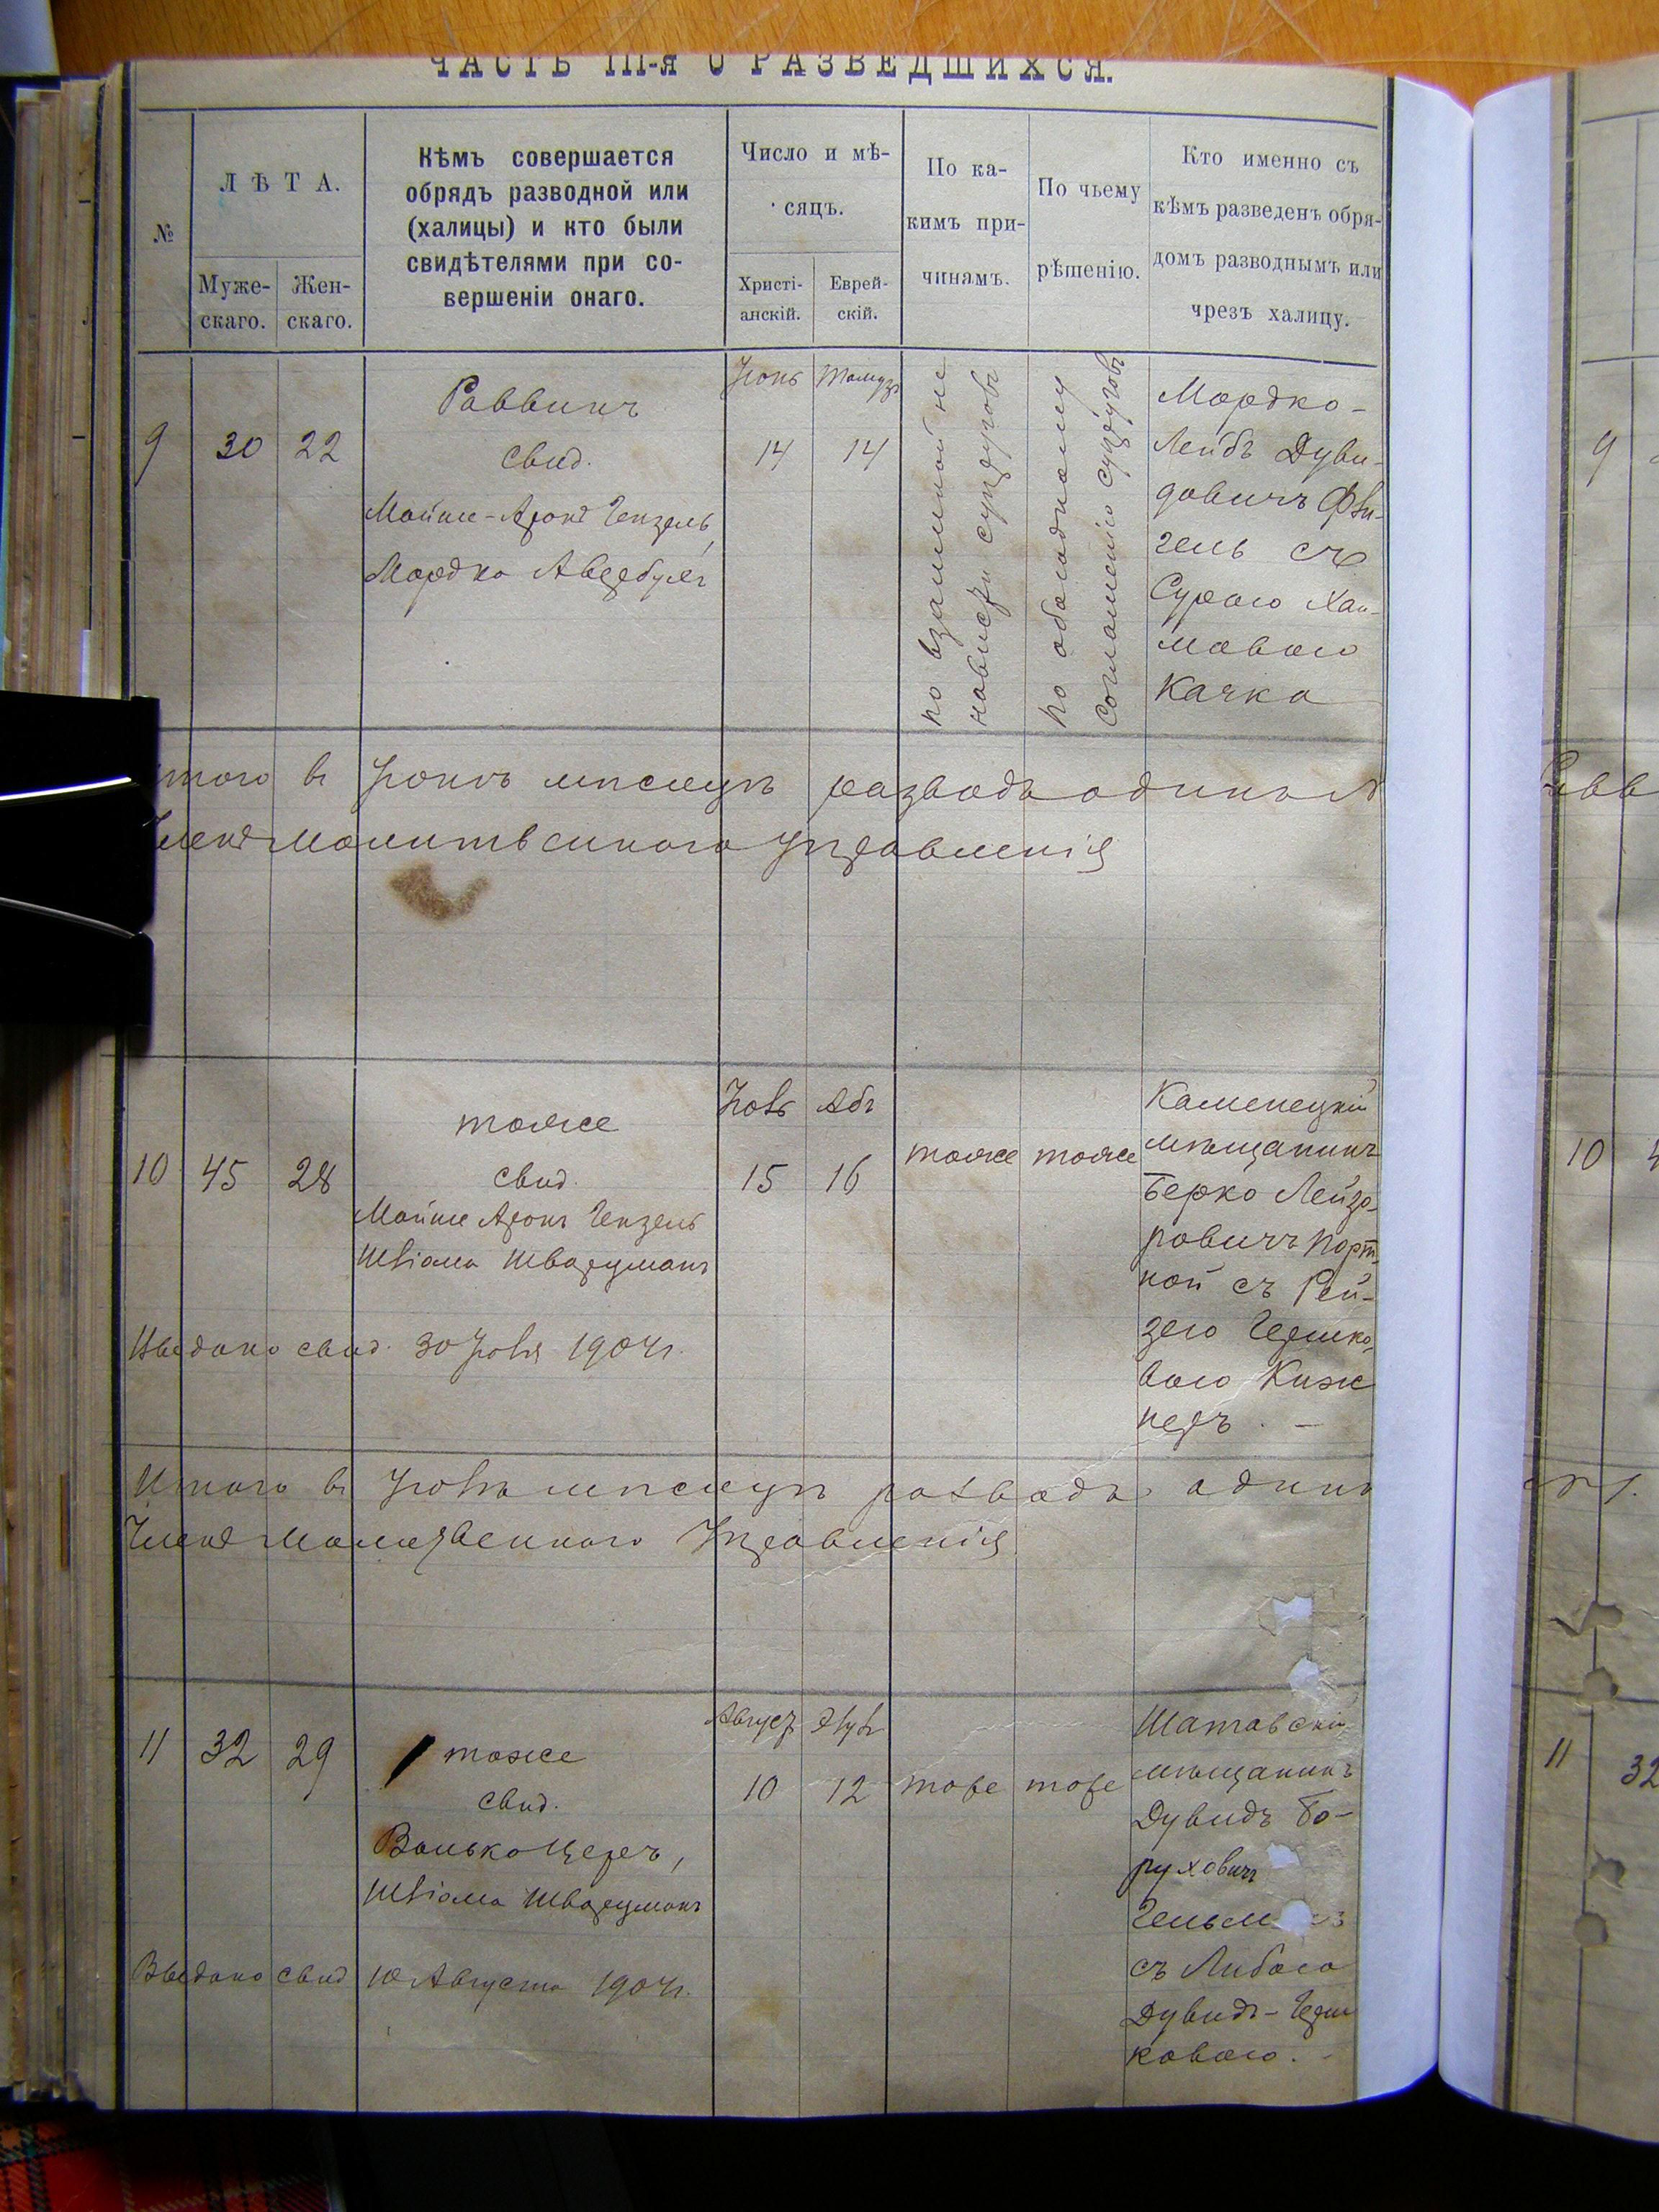 ЧАСТЬ III-Я О РАЗВЕДШИХСЯ.
№
ЛѢТА.
Муже-
скаго.
Жен-
скаго.
Кѣмъ совершается
обрядъ разводной или
(халицы) и кто были
свидѣтелями при со-
вершеніи онаго.
Число и мѣ-
сяцъ.
Христі-
анскій.
Еврей-
скій.
По ка-
кимъ при-
чинамъ.
По чьему
рѣшенію.
Кто именно съ
кѣмъ разведенъ обря-
домъ разводнымъ или
чрезъ халицу.
9
30
22
Раввинъ
свид.
Мойше-Аронъ Гензель,
Мордко
Іюнь
14
Тамузъ
14
по взаимной не
нависти супруговъ
по обоюдному
соглашенію супруговъ
Мордко-
Лейбъ Дуви-
довичъ Фѣй-
гель съ
Сурою Хаи-
мовою
Качка
Итого въ Іюнѣ мѣсяцѣ разводъ одинъ
Членъ Молитвеннаго Управленія
10
45
28
тоже
свид.
Мойше Аронъ Гензель
Шварцманъ
Іюль
15
Абъ
16
тоже
тоже
Каменецкій
мѣщанинъ
Берко Лейзо-
ровичъ Порт-
ной съ Рей-
зею Гершко-
вою Киж
неръ. -
Выдано свид. 30 Іюля 1904г.
Итого въ Іюлѣ мѣсяцѣ разводъ одинъ
Членъ Молитвеннаго Управленія
11
32
29
тоже
свид.
Волько Церъ,
Шварцманъ
Августъ
10
Элулъ
12
тоже
тоже
Шатавскій
мѣщанинъ
Дувидъ Бо-
руховичъ
Гельм
съ Либою
Дувидъ-Герш
ковою. -
Выдано свид 10 Августа 1904г.
9
10
11
32